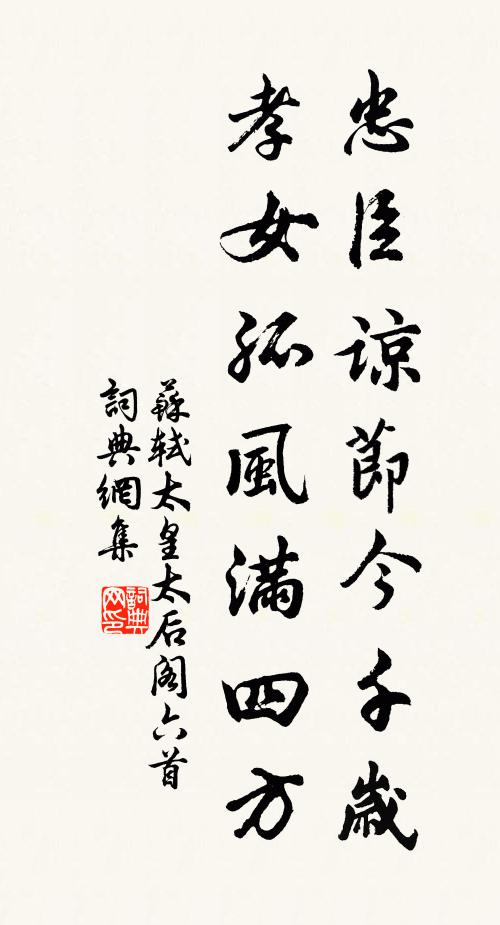 忠臣諒節今千歲
孝女孤風滿四方
蘇軾太皇太后閣六首
詞典網集
詞典
网印